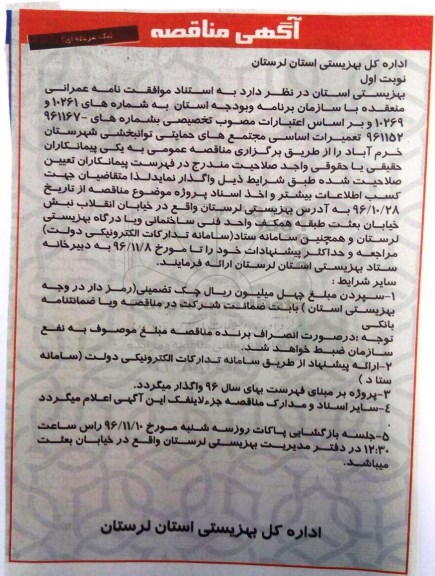 آگهی مناقصه
اداره کل بهزیستی استان لرستان
نوبت اول
بهزیستی استان در نظر دارد به استناد موافقت نامه عمرانی
منعقده با سازمان برنامه وبودجه استان به شماره های ۱۰۲۶۱ و
۱۰۲۶۹ و بر اساس اعتبارات مصوب تخصیصی بشماره های ۹۶۱۱۶۷-
۹۶۱۱۵۲ تعمیرات اساسی مجتمع های حمایتی توانبخشی شهرستان
خرم آباد را از طریق برگزاری مناقصه عمومی به یکی پیمانکاران
حقیقی یا حقوقی واجد صلاحیت مندرج در فهرست پیمانکاران تعیین
صلاحیت شده طبق شرایط ذیل واگذار نماید لذا متقاضیان جهت
کسب اطلاعات بیشتر و اخذ اسناد پروژه موضوع مناقصه از تاریخ
۹۶/۱۰/۲۸ به آدرس بهزیستی لرستان واقع در خیابان انقلاب نبش
خیابان بعثت طبقه همکف واحد فنی ساختمانی ویا درگاه بهزیستی
لرستان و همچنین سامانه ستاد(سامانه تدارکات الکترونیکی دولت)
مراجعه و حداکثر پیشنهادات خود را تا مورخ ۹۶/۱۱/۸ به دبیرخانه
ستاد بهزیستی استان لرستان ارائه فرمایند.
سایر شرایط :
۱-سپردن مبلغ چهل میلیون ریال چک تضمینی(رمز دار در وجه
بهزیستی استان ) بابت ضمانت شرکت در مناقصه ویا ضمانتنامه
بانکی
توجه :درصورت انصراف برنده مناقصه مبلغ موصوف به نفع
سازمان ضبط خواهد شد.
۲-ارائه پیشنهاد از طریق سامانه تدارکات الکترونیکی دولت (سامانه
ستا د )
۳-پروژه بر مبنای فهرست بهای سال ۹۶ واگذار میگردد.
۴-سایر اسناد و مدارک مناقصه جزءلاینفک این آگهی اعلام میگردد
.
۵-جلسه بازگشایی پاکات روزسه شنبه مورخ ۹۶/۱۱/۱۰ راس ساعت
۱۲:۳۰ در دفتر مدیریت بهزیستی لرستان واقع در خیابان بعثت
میباشد.
اداره کل بهزیستی استان لرستان